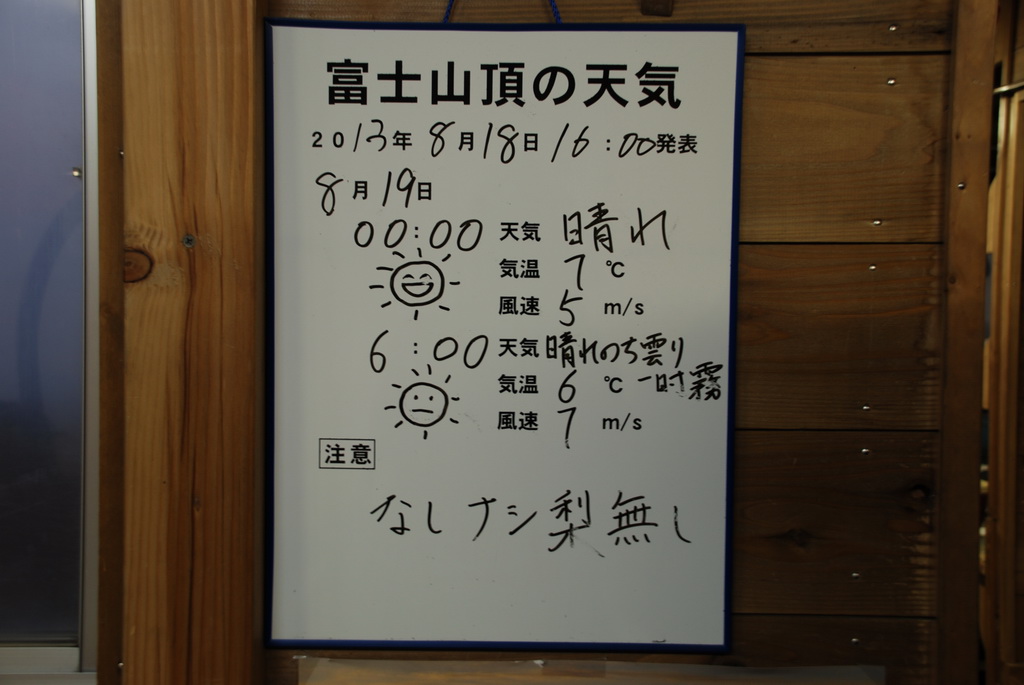 富士山頂の天気
2013年 8月18日 16:00発表
8月19日
00:00 天気 晴れ
気温 7 ℃
風速 5 m/s
6:00 天気 晴れのち雲り
気温 6 ℃ 一時霧
風速 7 m/s
注意
なし ナシ 梨 無し